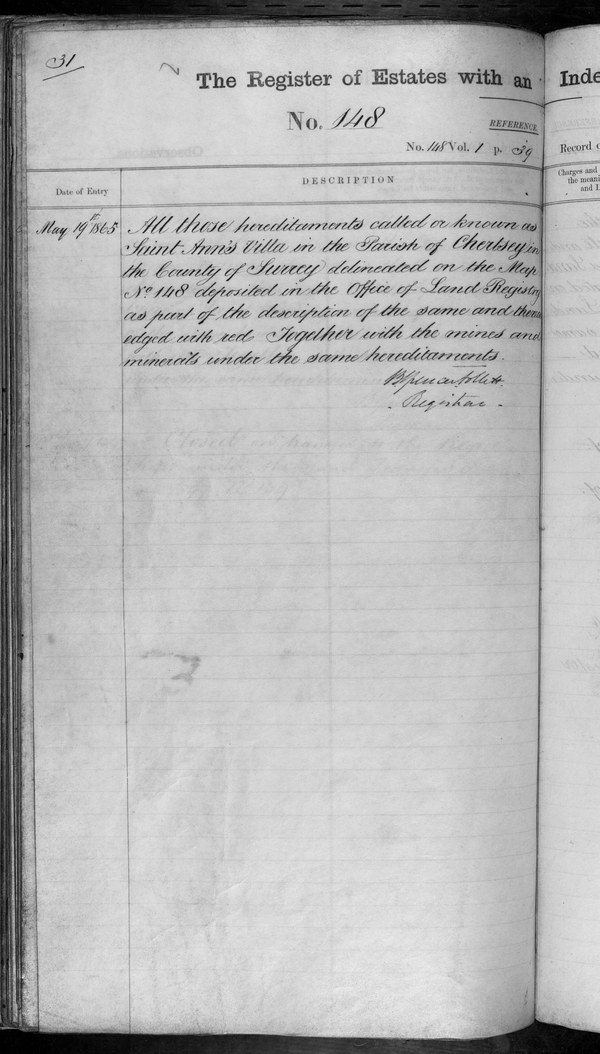 31
The Register of Estates with an
Inde
No. 148
REFERENCE.
No. 148 Vol. 1 p. 39
Record
Date of Entry
DESCRIPTION
Charges and
the meani
and L
May 19th 1865
All those hereditaments called or known as
Saint Ann's Villa in the Parish of Chertsey in
the County of Surrey delineated on the Map
No 148 deposited in the Office of Land Registry
as part of the description of the same and thereon
edged with red Together with the mines and
minerals under the same hereditaments.
Registrar